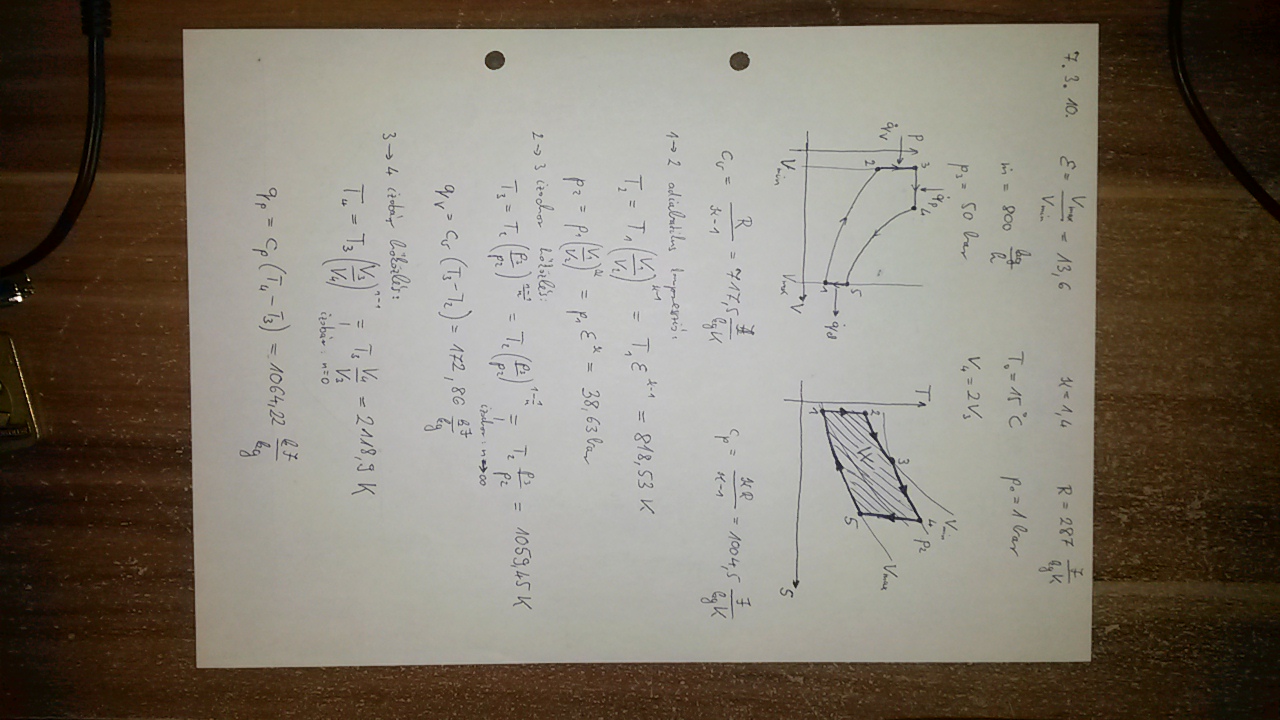 7.3.10. ε = Vmax/Vmin = 13,6 ϰ = 1,4 R = 287 J/kgK
ṁ = 800 kg/h T₀ = 15°C p₀ = 1 bar
p₃ = 50 bar V₄ = 2V₃
p 3 q̇p 4
q̇v 2
1 5 q̇le
Vmin Vmax V
T 4 p₂
2 3 Vmin
W
1 5 Vmax
S
Cv = R/(ϰ-1) = 717,5 J/kgK Cp = ϰR/(ϰ-1) = 1004,5 J/kgK
1→2 adiabatikus kompresszió:
T₂ = T₁(V₁/V₂)^(ϰ-1) = T₁ε^(ϰ-1) = 818,53 K
p₂ = p₁(V₁/V₂)^ϰ = p₁ε^ϰ = 38,63 bar
2→3 izochor hőközlés:
T₃ = T₂(p₃/p₂)^((n-1)/n) = T₂(p₃/p₂)^(1-1/n) = T₂ p₃/p₂ = 1059,45 K
izochor: n→∞
qv = Cv(T₃-T₂) = 172,86 kJ/kg
3→4 izobár hőközlés:
T₄ = T₃(V₃/V₄)^(n-1) = T₃ V₄/V₃ = 2118,9 K
izobár: n=0
qp = Cp(T₄-T₃) = 1064,22 kJ/kg